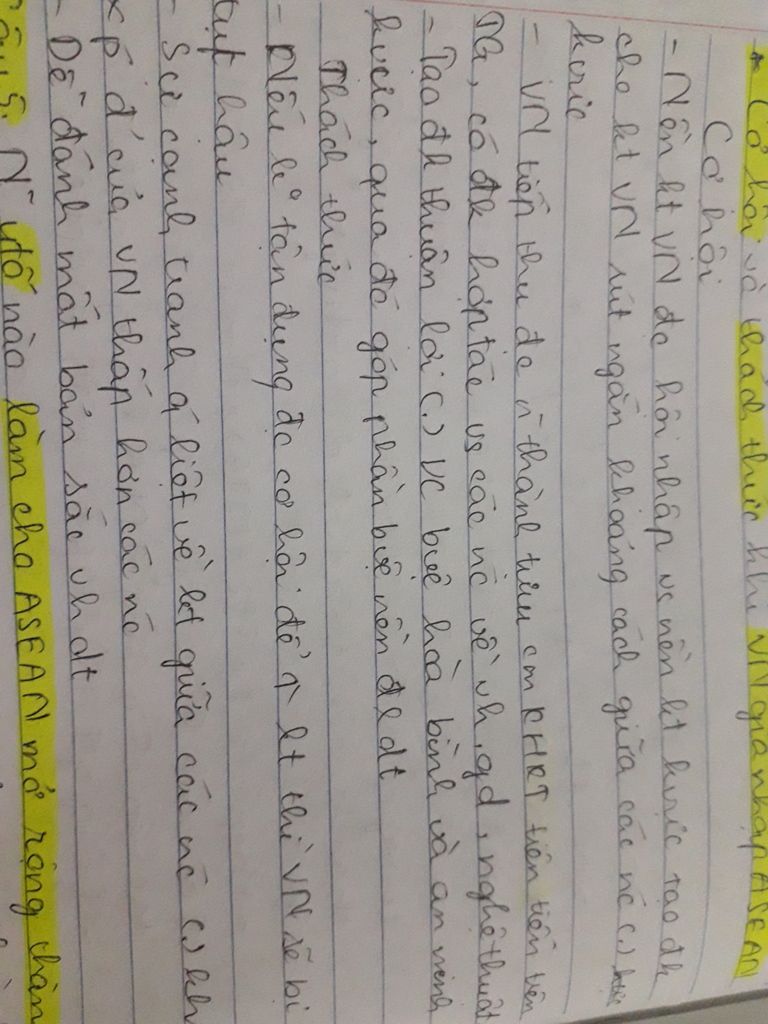 * Cơ hội và thách thức khi VN gia nhập ASEAN
Cơ hội
- Nền kt VN đc hội nhập vs nền kt kvực tạo đk
cho kt VN rút ngắn khoảng cách giữa các nc (.) kvực
kvực
- VN tiếp thu đc thành tựu cm KHKT tiên tiến trên
TG, có đk hợp tác vs các nc về vh, gd, nghệ thuật
- Tạo đk thuận lợi (.) vc bvệ hòa bình và an ninh
kvực, qua đó góp phần bvệ nền đl dt
Thách thức
- Nếu ko tận dụng đc cơ hội để kt thì VN sẽ bị
tụt hậu
- Sự cạnh tranh liệt về kt giữa các nc (.) kh
của VN thấp hơn các nc
- Dễ đánh mất bản sắc vh dt
tố nào làm cho ASEAN mở rộng thàn